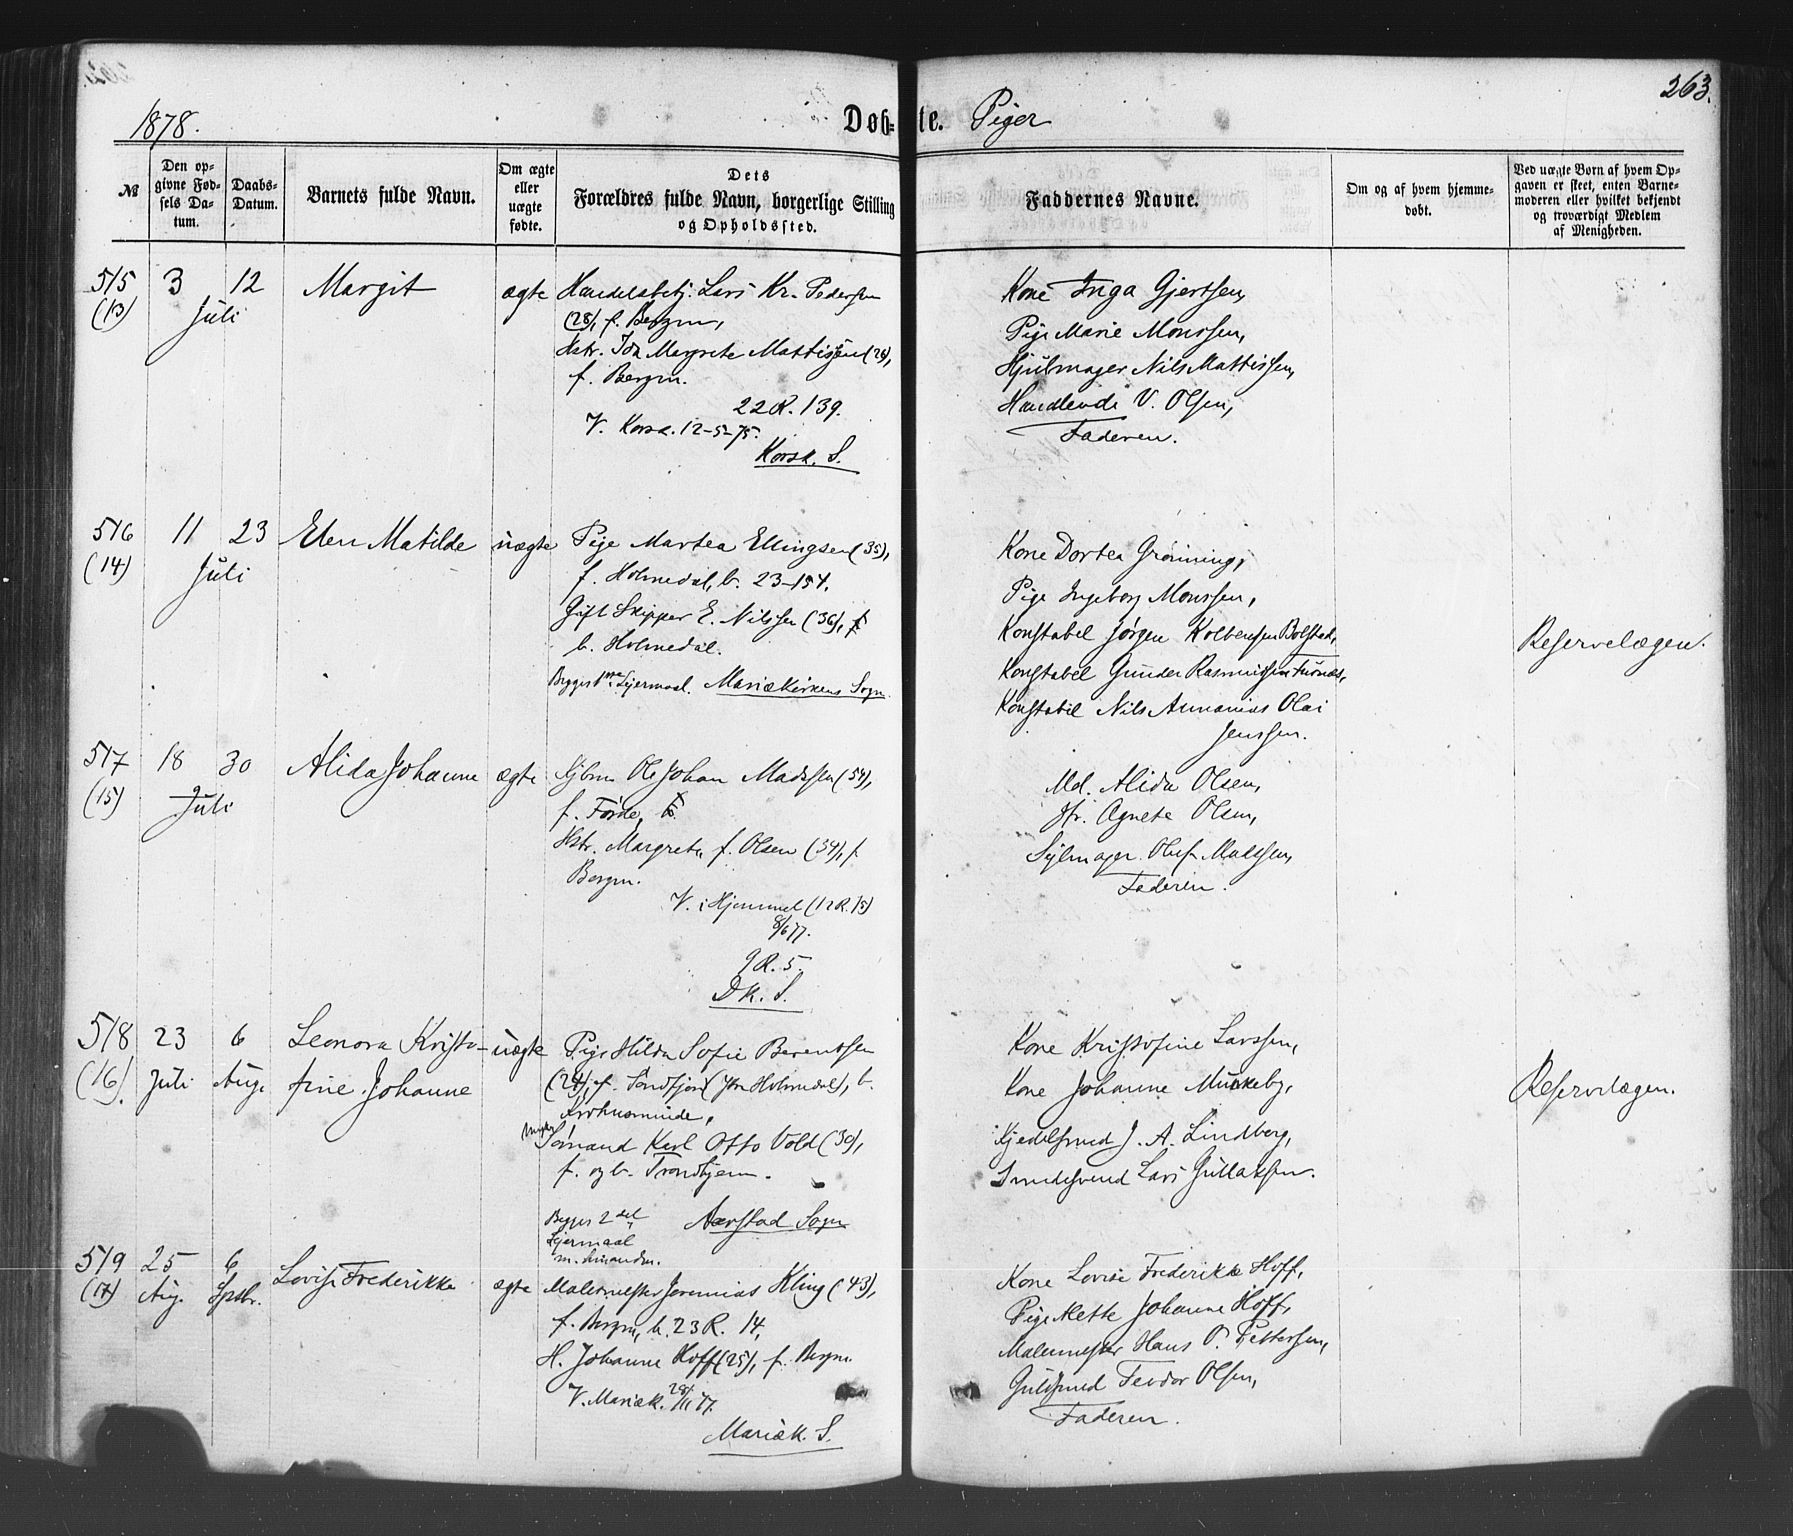 263.
1878.
Døb-te. Piger
№
Den op-
givne Fød-
sels Da-
tum.
Daabs-
Datum.
Barnets fulde Navn.
Om ægte
eller
uægte
fødte.
Dets
Forældres fulde Navn, borgerlige Stilling
og Opholdssted.
Faddernes Navne.
Om og af hvem hjemme-
døbt.
Ved uægte Børn af hvem Op-
gaven er skeet, enten Barne-
moderen eller hvilket bekjendt
og troværdigt Medlem
af Menigheden.
515
(13)
3 12
Juli
Margit
ægte
Handelsbetj. Lars Kr. Pedersen
(28), f. Bergen,
Hstr. Ida Margrete Mattissen (26),
f. Bergen.
22 R. 139.
V. Korsk. 12-5-75.
Korsk. S.
Kone Inga Gjertsen,
Pige Marie Monssen,
Hjulmager Nils Mattissen,
Handlende V. Olsen,
Faderen.
516
(14)
11 23
Juli
Elen Matilde
uægte
Pige Martea Ellingsen (35),
f. Holmedal, b. 23-154.
Gift Skipper E. Nilssen (36), f.
b. Holmedal.
Begges 1ste Lejermaal. Mariækirkens Sogn.
Kone Dortea Grønning,
Pige Ingeborg Monssen,
Konstabel Jørgen Kolbensen Bolstad,
Konstabel Gunder Rasmussen Furnæs,
Konstabel Nils Annanias Olai
Jenssen.
Reservelægen.
517
(15)
18 30
Juli
Alida Johanne
ægte
Ole Johan Madssen (54),
f. Førde,
Hstr. Margrete, f. Olsen (34), f.
Bergen.
V. i Hjemmet (12 R. 15)
8/6 77.
9 R. 5.
Dk. S.
Md. Alida Olsen,
Jfr. Agnete Olsen,
Sejlmager Oluf Madssen,
Faderen.
518
(16)
23 6
Juli Aug.
Leonora Kristo-
fine Johanne
uægte
Pige Hilda Sofie Berentsen
(24), f. Søndfjord (Ytre Holmedal), b.
Krohnsminde,
Ungkr. Sømand Karl Otto Vold (30),
f. og b. Trondhjem.
Begges 2det
Lejermaal
m. hinanden.
Aarstad Sogn
Kone Kristofine Larssen,
Kone Johanne Munkeby,
Kjedelsmed J. A. Lindberg,
Smedesvend Lars Gullaksen.
Reservelægen.
519
(17)
25 6
Aug. Sptbr.
Lovise Frederikke
ægte
Malermester Jeremias Kling (43),
f. Bergen, b. 23 R. 14,
H. Johanne Hoff (25), f. Bergen.
V. Mariæk. 28/11 77.
Mariæk. S.
Kone Lovise Frederikke Hoff,
Pige Mette Johanne Hoff,
Malermester Hans P. Pettersen,
Guldsmed Teodor Olsen,
Faderen.